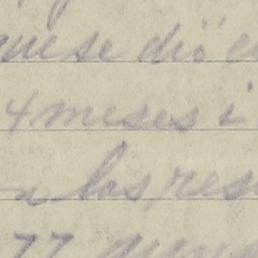 que se dió e
4 meses i
a los, res
77